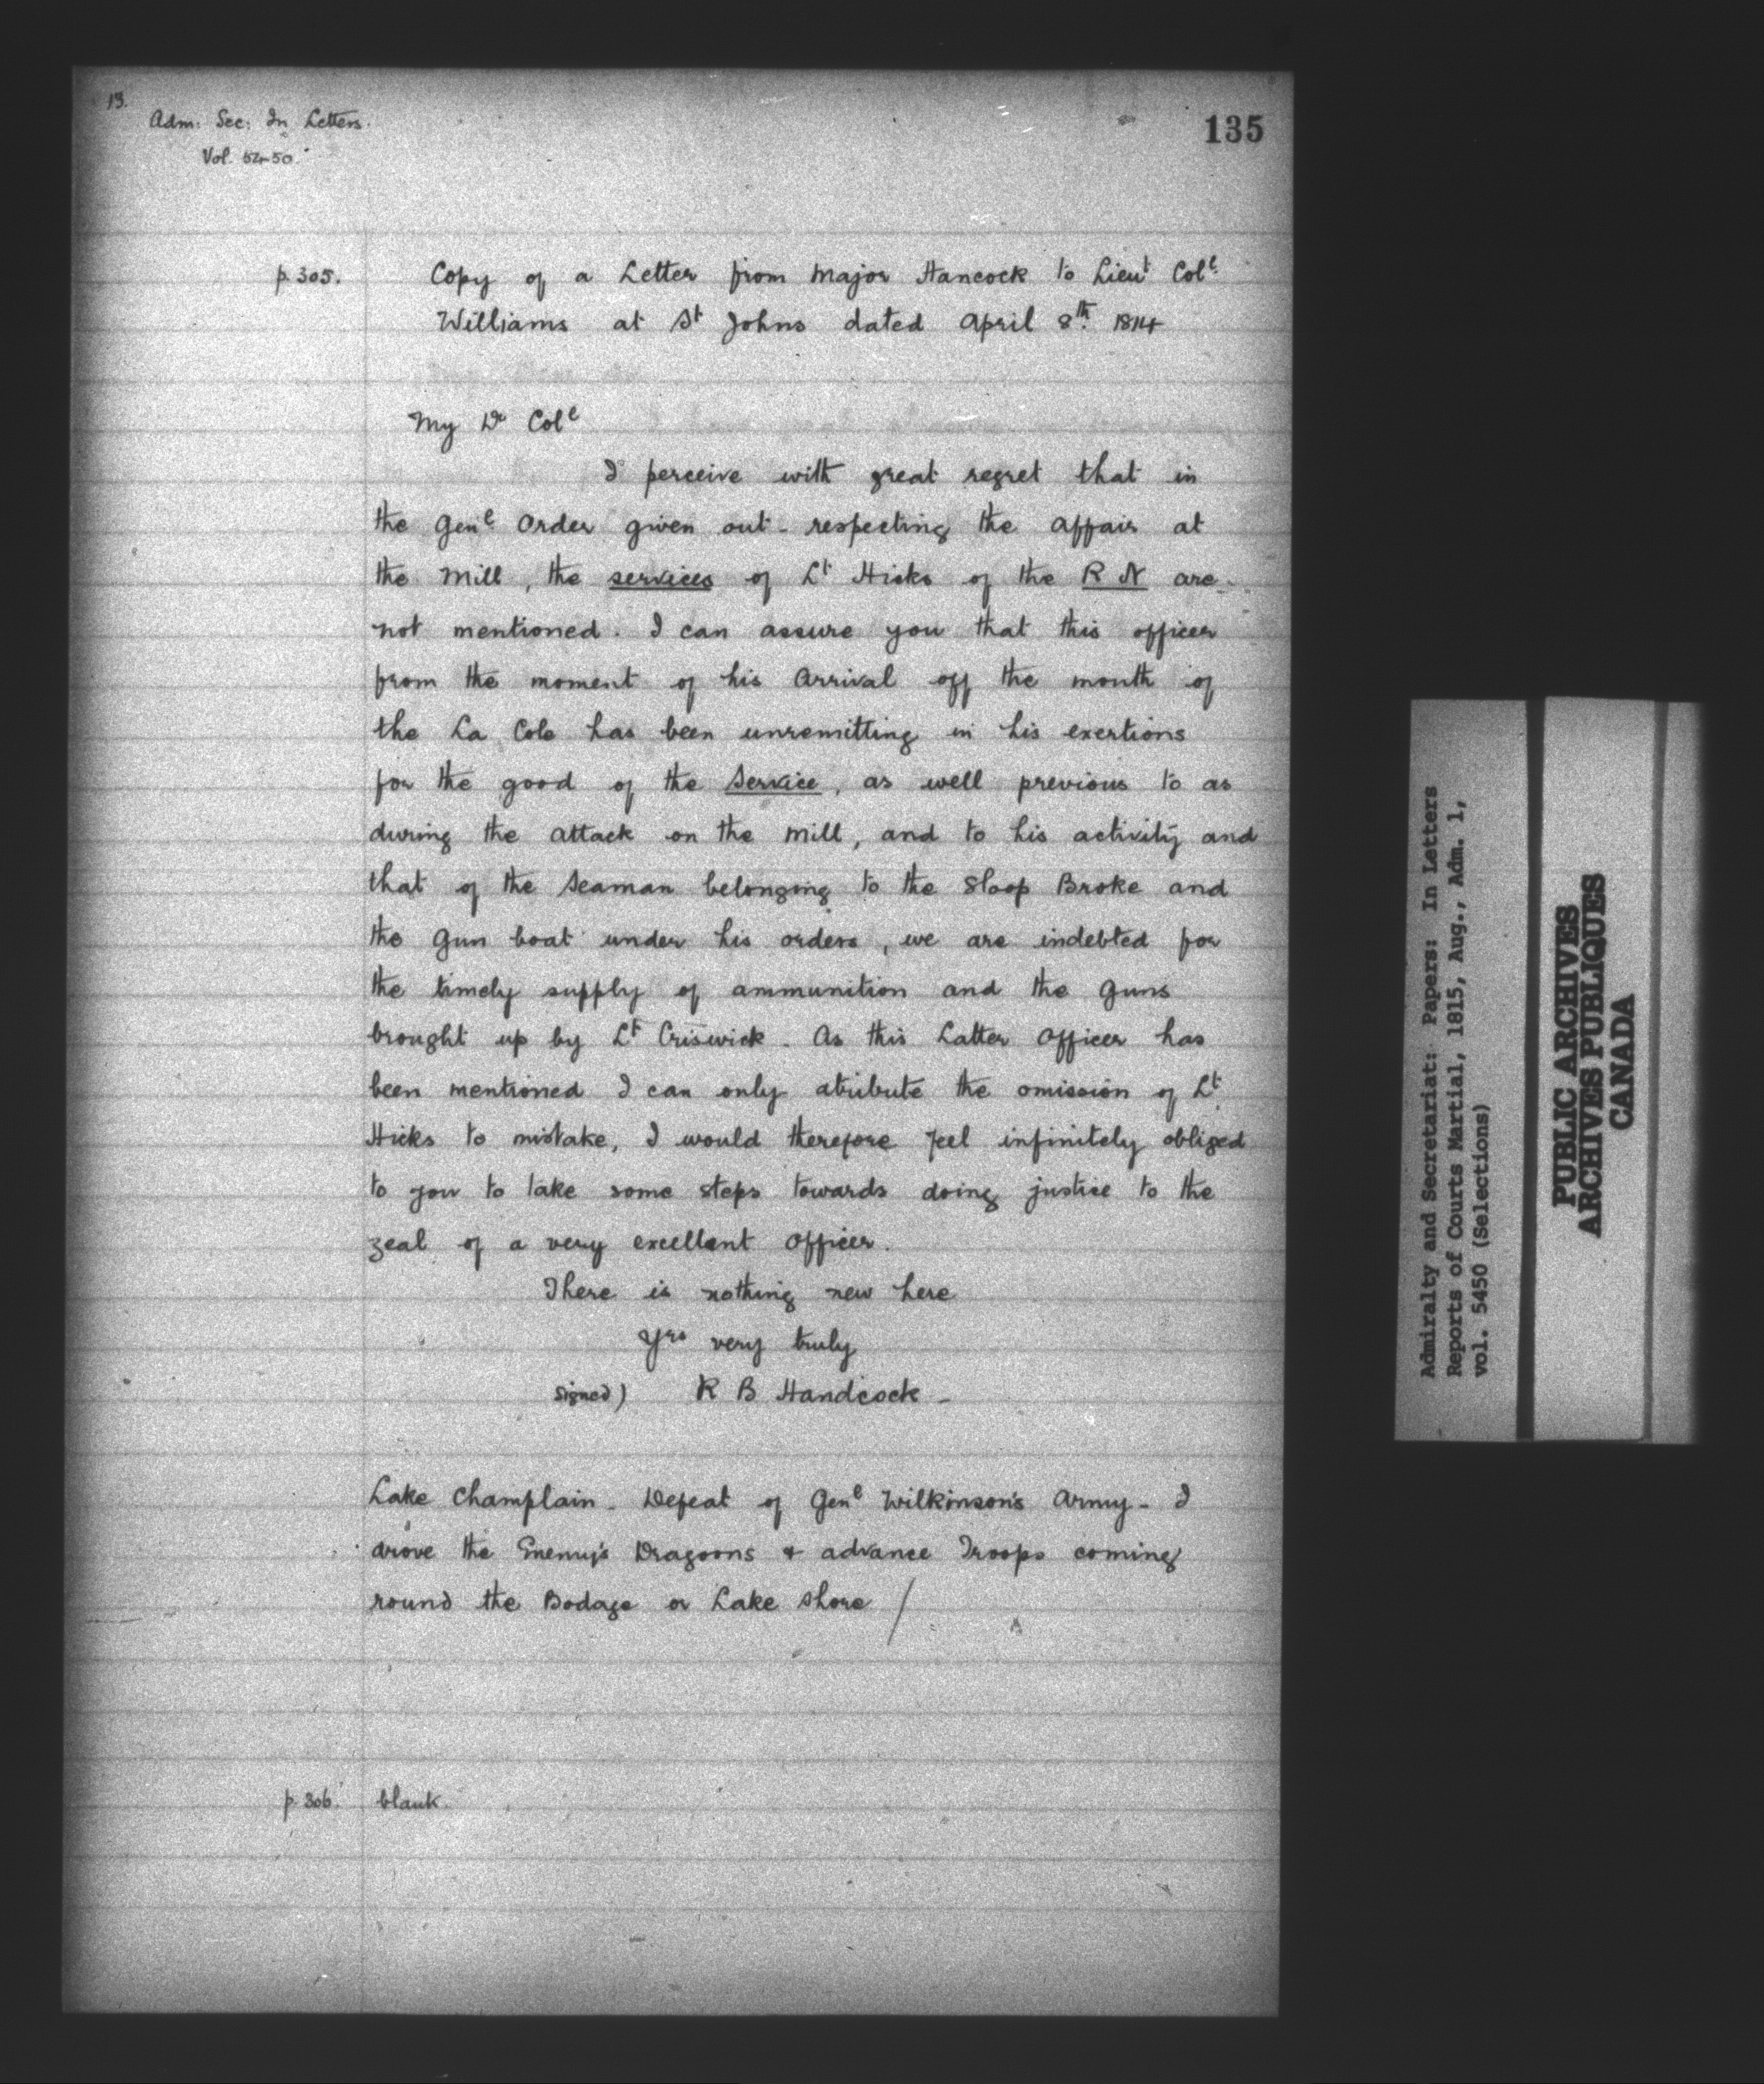 13.
Adm: Sec: In Letters.
Vol. 5450.
135
p. 305.
Copy of a Letter from Major Hancock to Lieut Coll
Williams at St Johns dated April 8th 1814
My Dr Coll
I perceive with great regret that in
the Genl Order given out - respecting the affair at
the Mill, the services of Lt Hicks of the R N are
not mentioned. I can assure you that this officer
from the moment of his Arrival off the mouth of
the La Cole has been unremitting in his exertions
for the good of the Service, as well previous to as
during the attack on the Mill, and to his activity and
that of the Seaman belonging to the Sloop Broke and
the Gun boat under his orders, we are indebted for
the timely supply of ammunition and the Guns
brought up by Lt Criswick. As this Latter Officer has
been mentioned I can only atribute the omission of Lt
Hicks to mistake, I would therefore feel infinitely obliged
to you to take some steps towards doing justice to the
zeal of a very excellent Officer.
There is nothing new here
Yrs very truly
signed) R B Handcock -
Lake Champlain - Defeat of Genl Wilkinson's Army - I
drove the Enemy's Dragoons & advance Troops coming
round the Bodage or Lake Shore /
p. 306. blank.
Admiralty and Secretariat: Papers: In Letters
Reports of Courts Martial, 1815, Aug., Adm. 1,
vol. 5450 (Selections)
PUBLIC ARCHIVES
ARCHIVES PUBLIQUES
CANADA